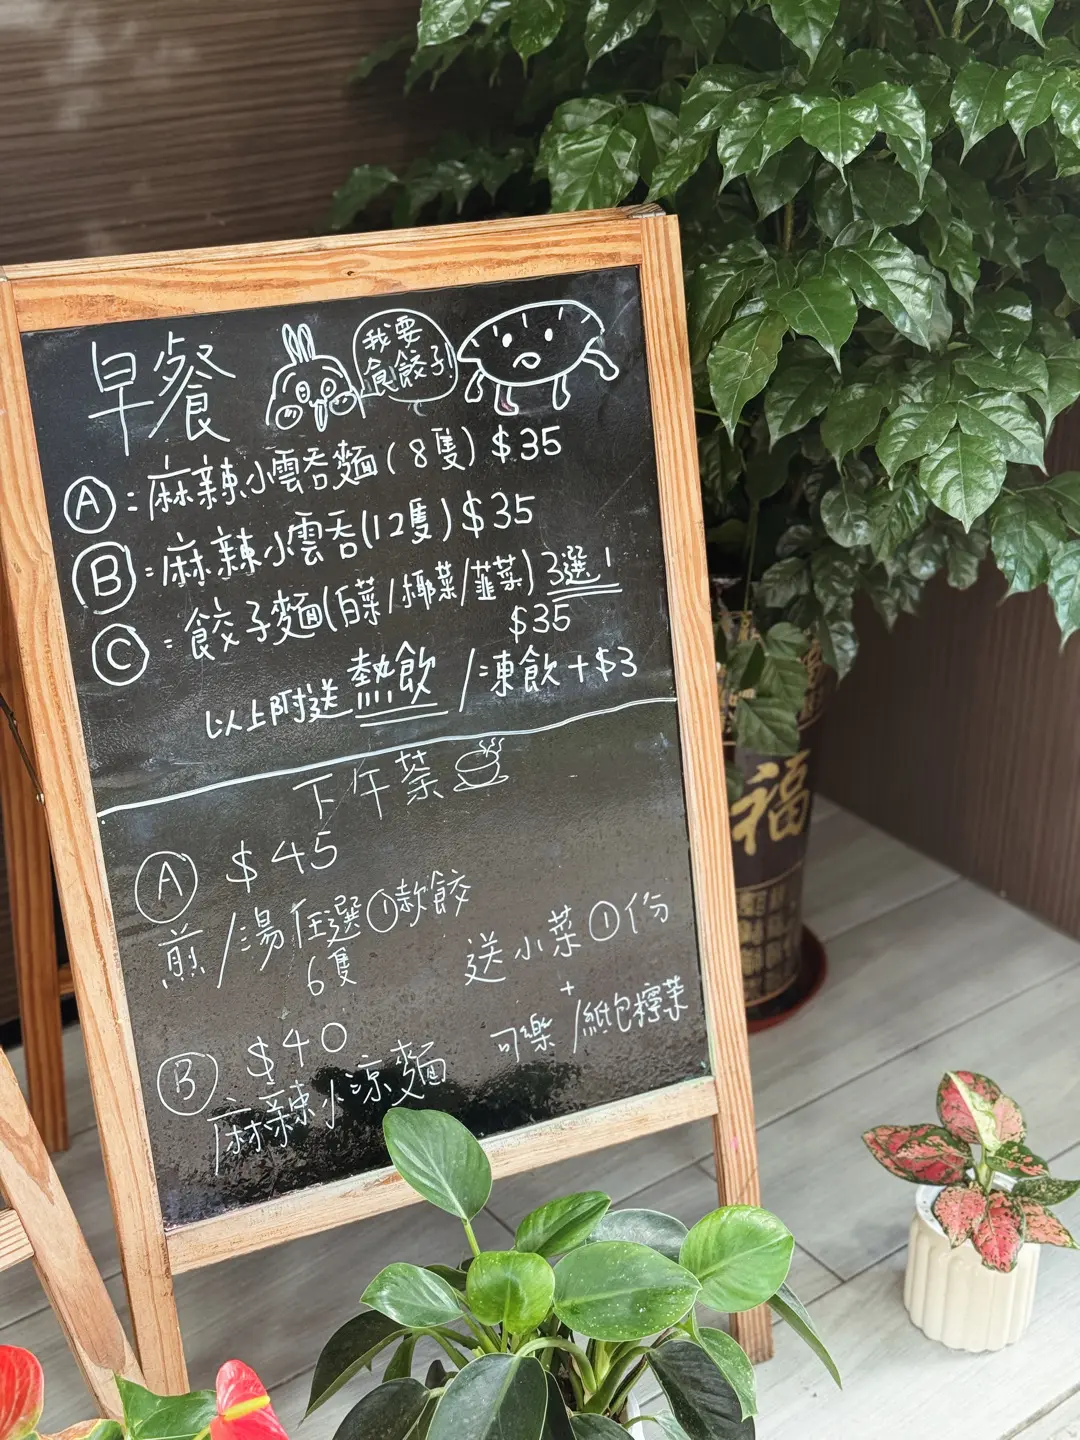 早餐
我要
食餃子!
Ⓐ：麻辣小雲吞麵(8隻) $35
Ⓑ：麻辣小雲吞(12隻) $35
Ⓒ：餃子麵(白菜/椰菜/韮菜) 3選1
$35
以上附送熱飲/凍飲+$3
下午茶
Ⓐ $45
煎/湯 任選①款餃
6隻
送小菜①份
+
可樂/紙包檸茶
Ⓑ $40
麻辣小涼麵
福